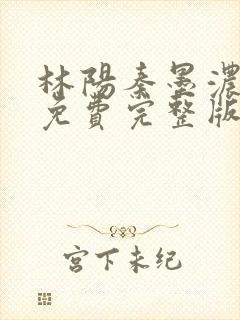 林陽秦墨濃
免費完整版
宮下未纪